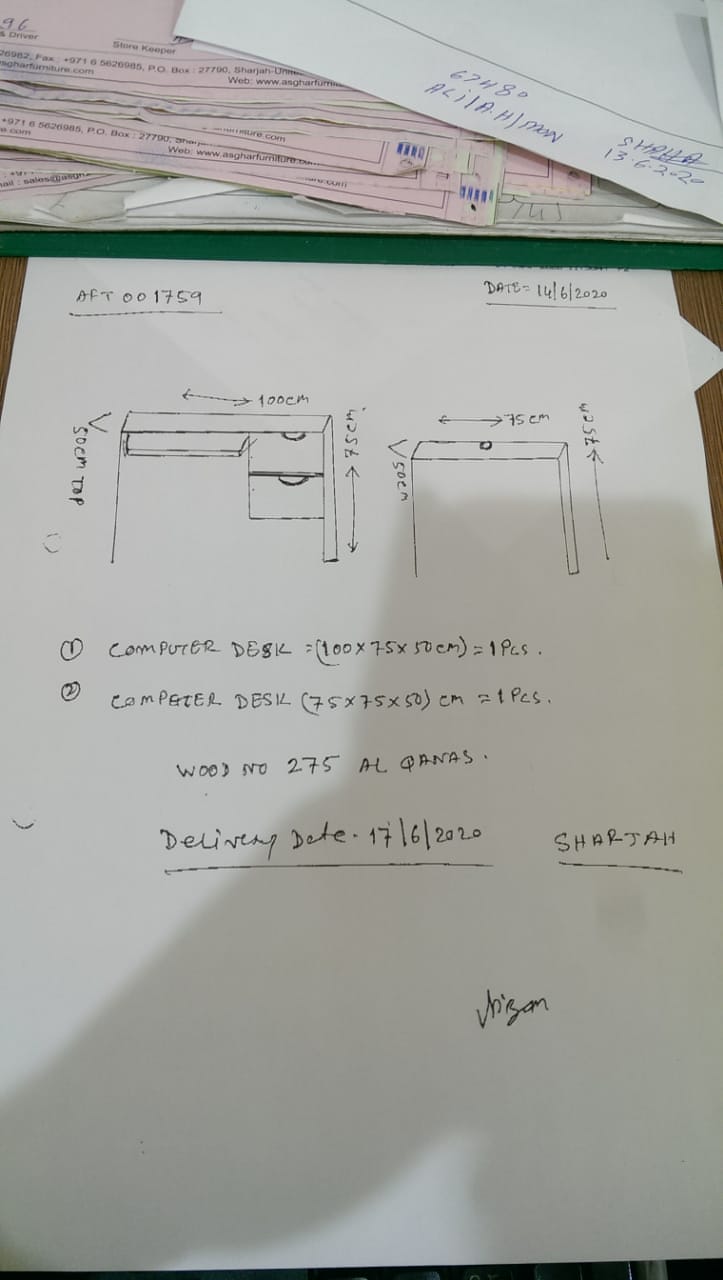 96
& Driver
Store Keeper
26982, Fax : +971 6 5626985, P.O. Box : 27790, Sharjah-Unite
sgharfurniture.com
Web: www.asgharfurnitu
+971 6 5626985, P.O. Box : 27790, Sharj
e.com
Web: www.asgharfurniture.com
ail : sales@asgh
67480
ALI/A.H/MAN
SHARJA
13-6-2020
AFT 001759
DATE= 14/6/2020
100cm
50cm TOP
75cm
75cm
50cm
75cm
① COMPUTER DESK =(100X75X50cm)=1Pcs.
② COMPETER DESK (75X75X50) cm =1Pcs.
WOOD NO 275 AL QANAS.
Delivery Date. 17/6/2020
SHARJAH